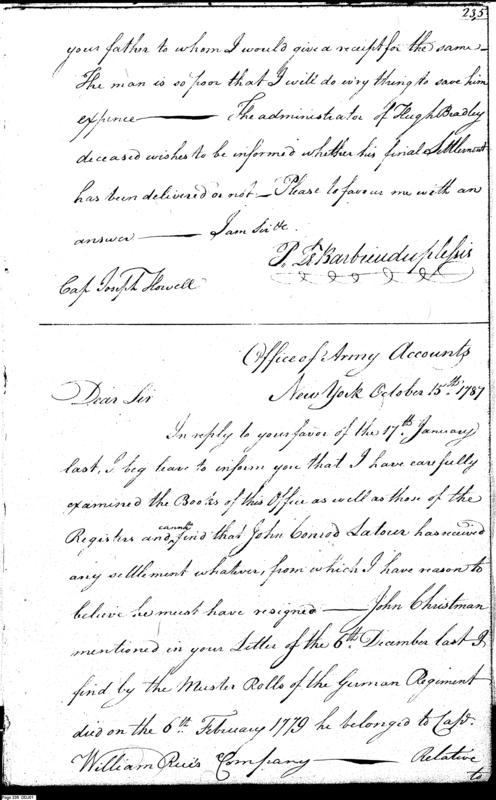 235
your father to whom I would give a receipt for the same –
The man is so poor that I will do every thing to save him
expence —— The administrator of Hugh Bradley
deceased wishes to be informed whether his final Settlement
has been delivered or not – Please to favour me with an
answer —— I am Sir &c.
P. Le Barbier duplessis
Cap Joseph Howell
Office of Army Accounts
New York October 15th. 1787
Dear Sir
In reply to your favor of the 17th. January
last, I beg leave to inform you that I have carefully
examined the Books of this Office as well as those of the
Registers and cannot find that John Conrod Latour has received
any settlement whatever, from which I have reason to
believe he must have resigned —— John Christman
mentioned in your Letter of the 6th. December last I
find by the Muster Rolls of the German Regiment
died on the 6th. February 1779 he belonged to Cap.
William Rices Company —— Relative
to
Page 235